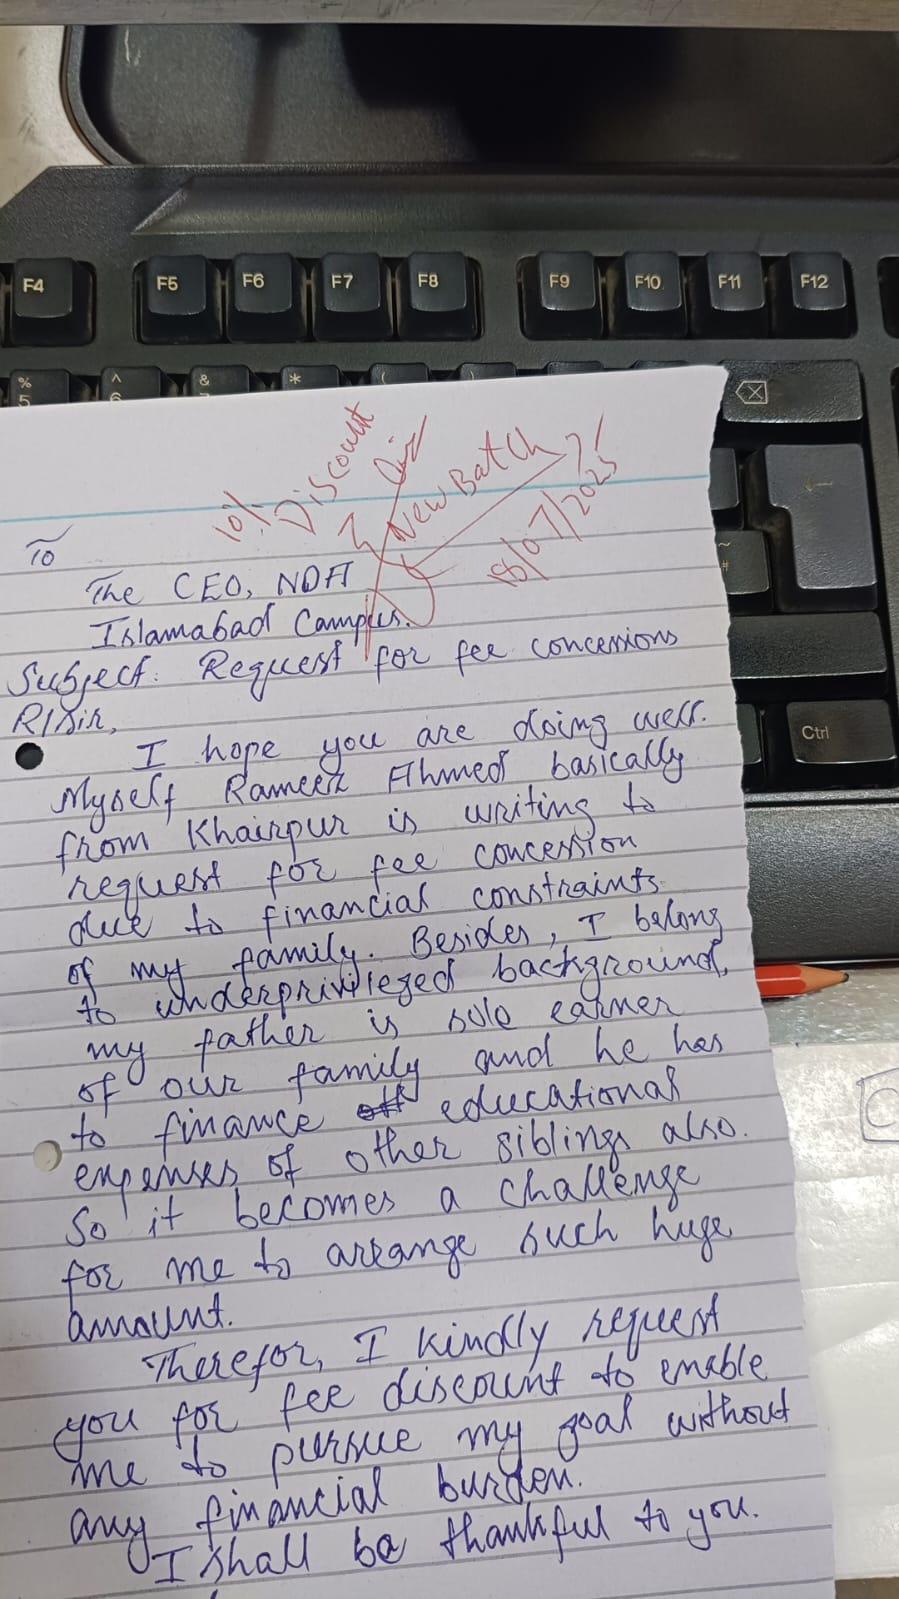 F4 F5 F6 F7 F8 F9 F10 F11 F12
% ^ & * ( )
5 6
~
#
Ctrl
10% Discount
New Batch
18/07/2025
To
The CEO, NOA
Islamabad Campus.
Subject: Request for fee concessions
R/Sir,
I hope you are doing well.
Myself Rameez Ahmed basically
from Khairpur is writing to
request for fee concession
due to financial constraints
of my family. Besides, I belong
to underprivileged background,
my father is sole earner
of our family and he has
to finance educational
expenses of other siblings also.
So it becomes a challenge
for me to arrange such huge
amount.
Therefor, I kindly request
you for fee discount to enable
me to pursue my goal without
any financial burden.
I shall be thankful to you.